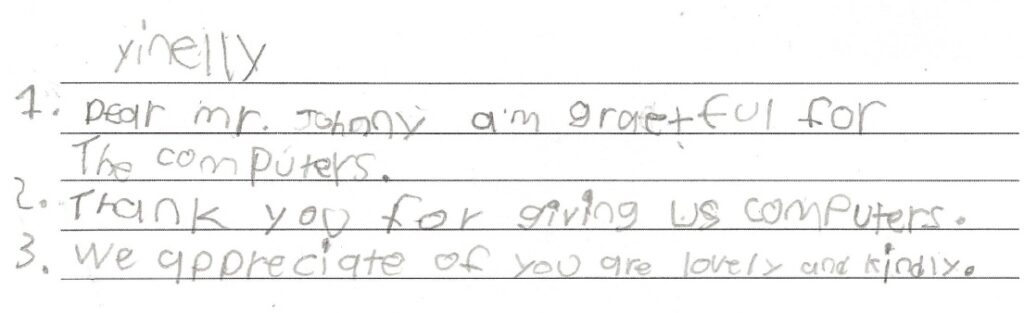 yinelly
1. Dear mr. Johnny a'm graetful for
The computers.
2. Thank you for giving us computers.
3. We appreciate of you are lovely and kindly.